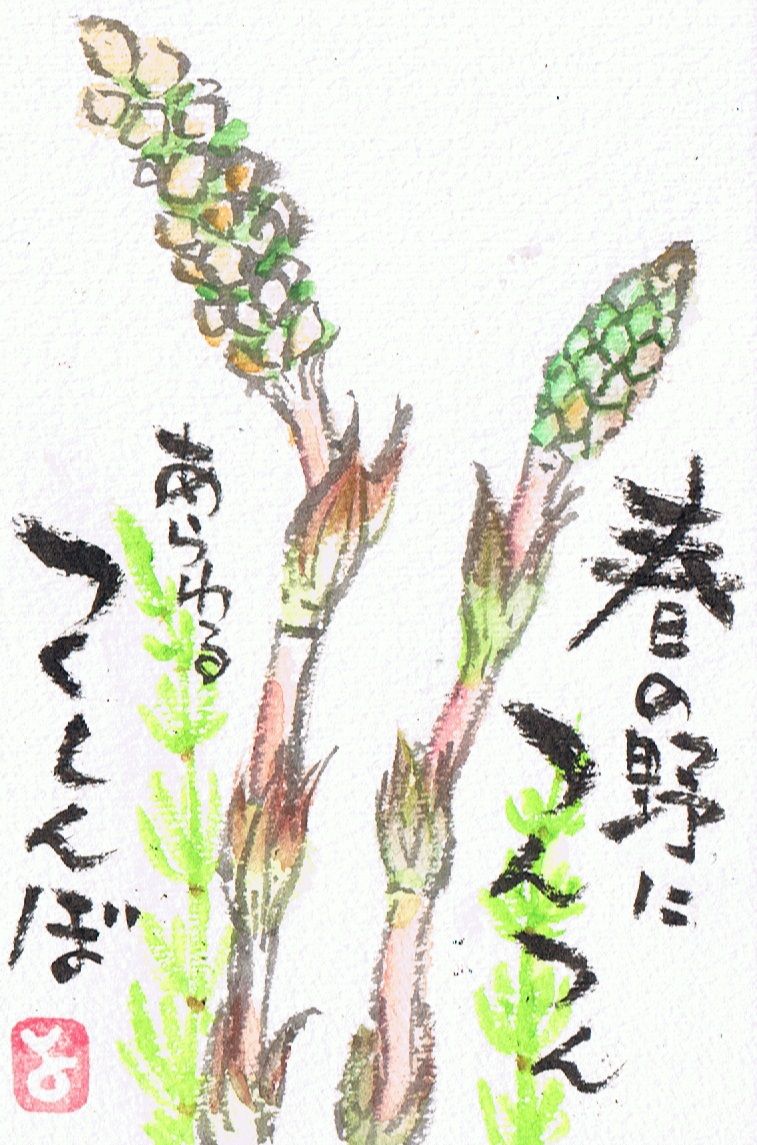 春の野に
つんつん
あらわる
つくしんぼ
よ